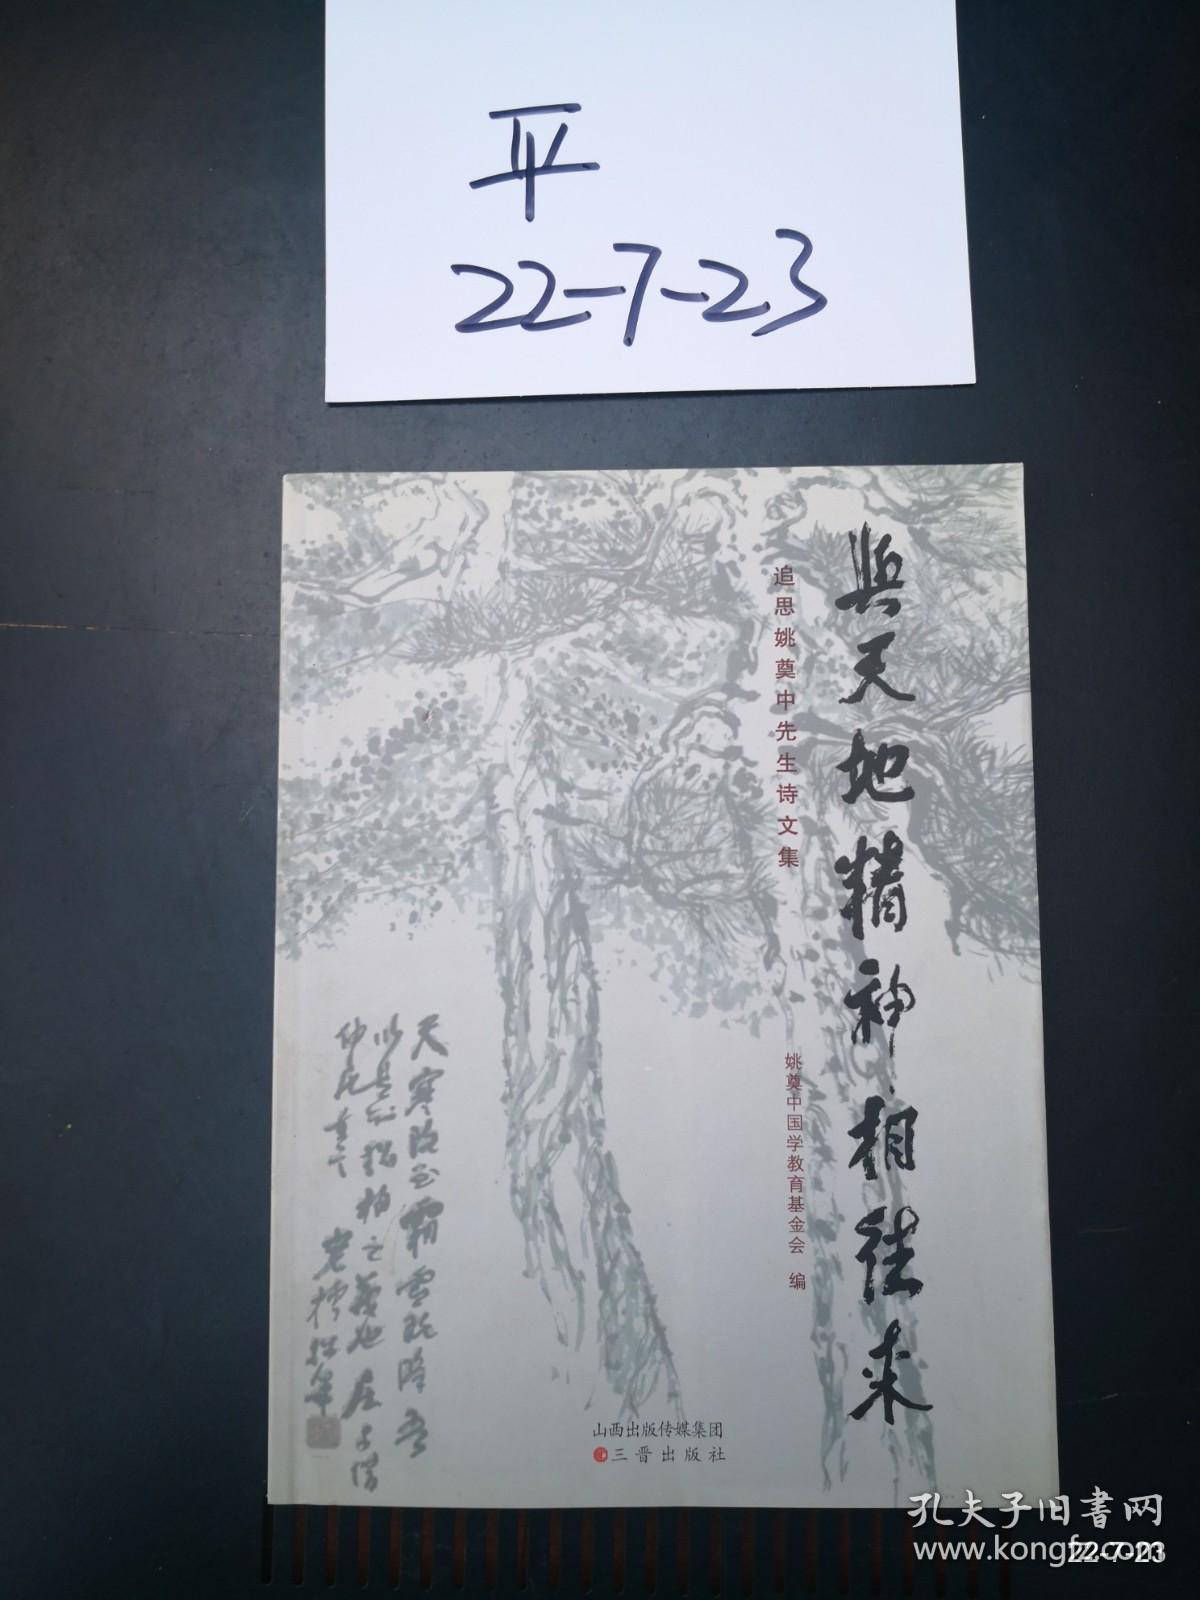 平
22-7-23
与天地精神相往来
追思姚奠中先生诗文集
姚奠中国学教育基金会 编
天寒既至霜雪既降吾
以是知松柏之茂也
山西出版传媒集团
三晋出版社
孔夫子旧书网
www.kongfz.com
22-7-23